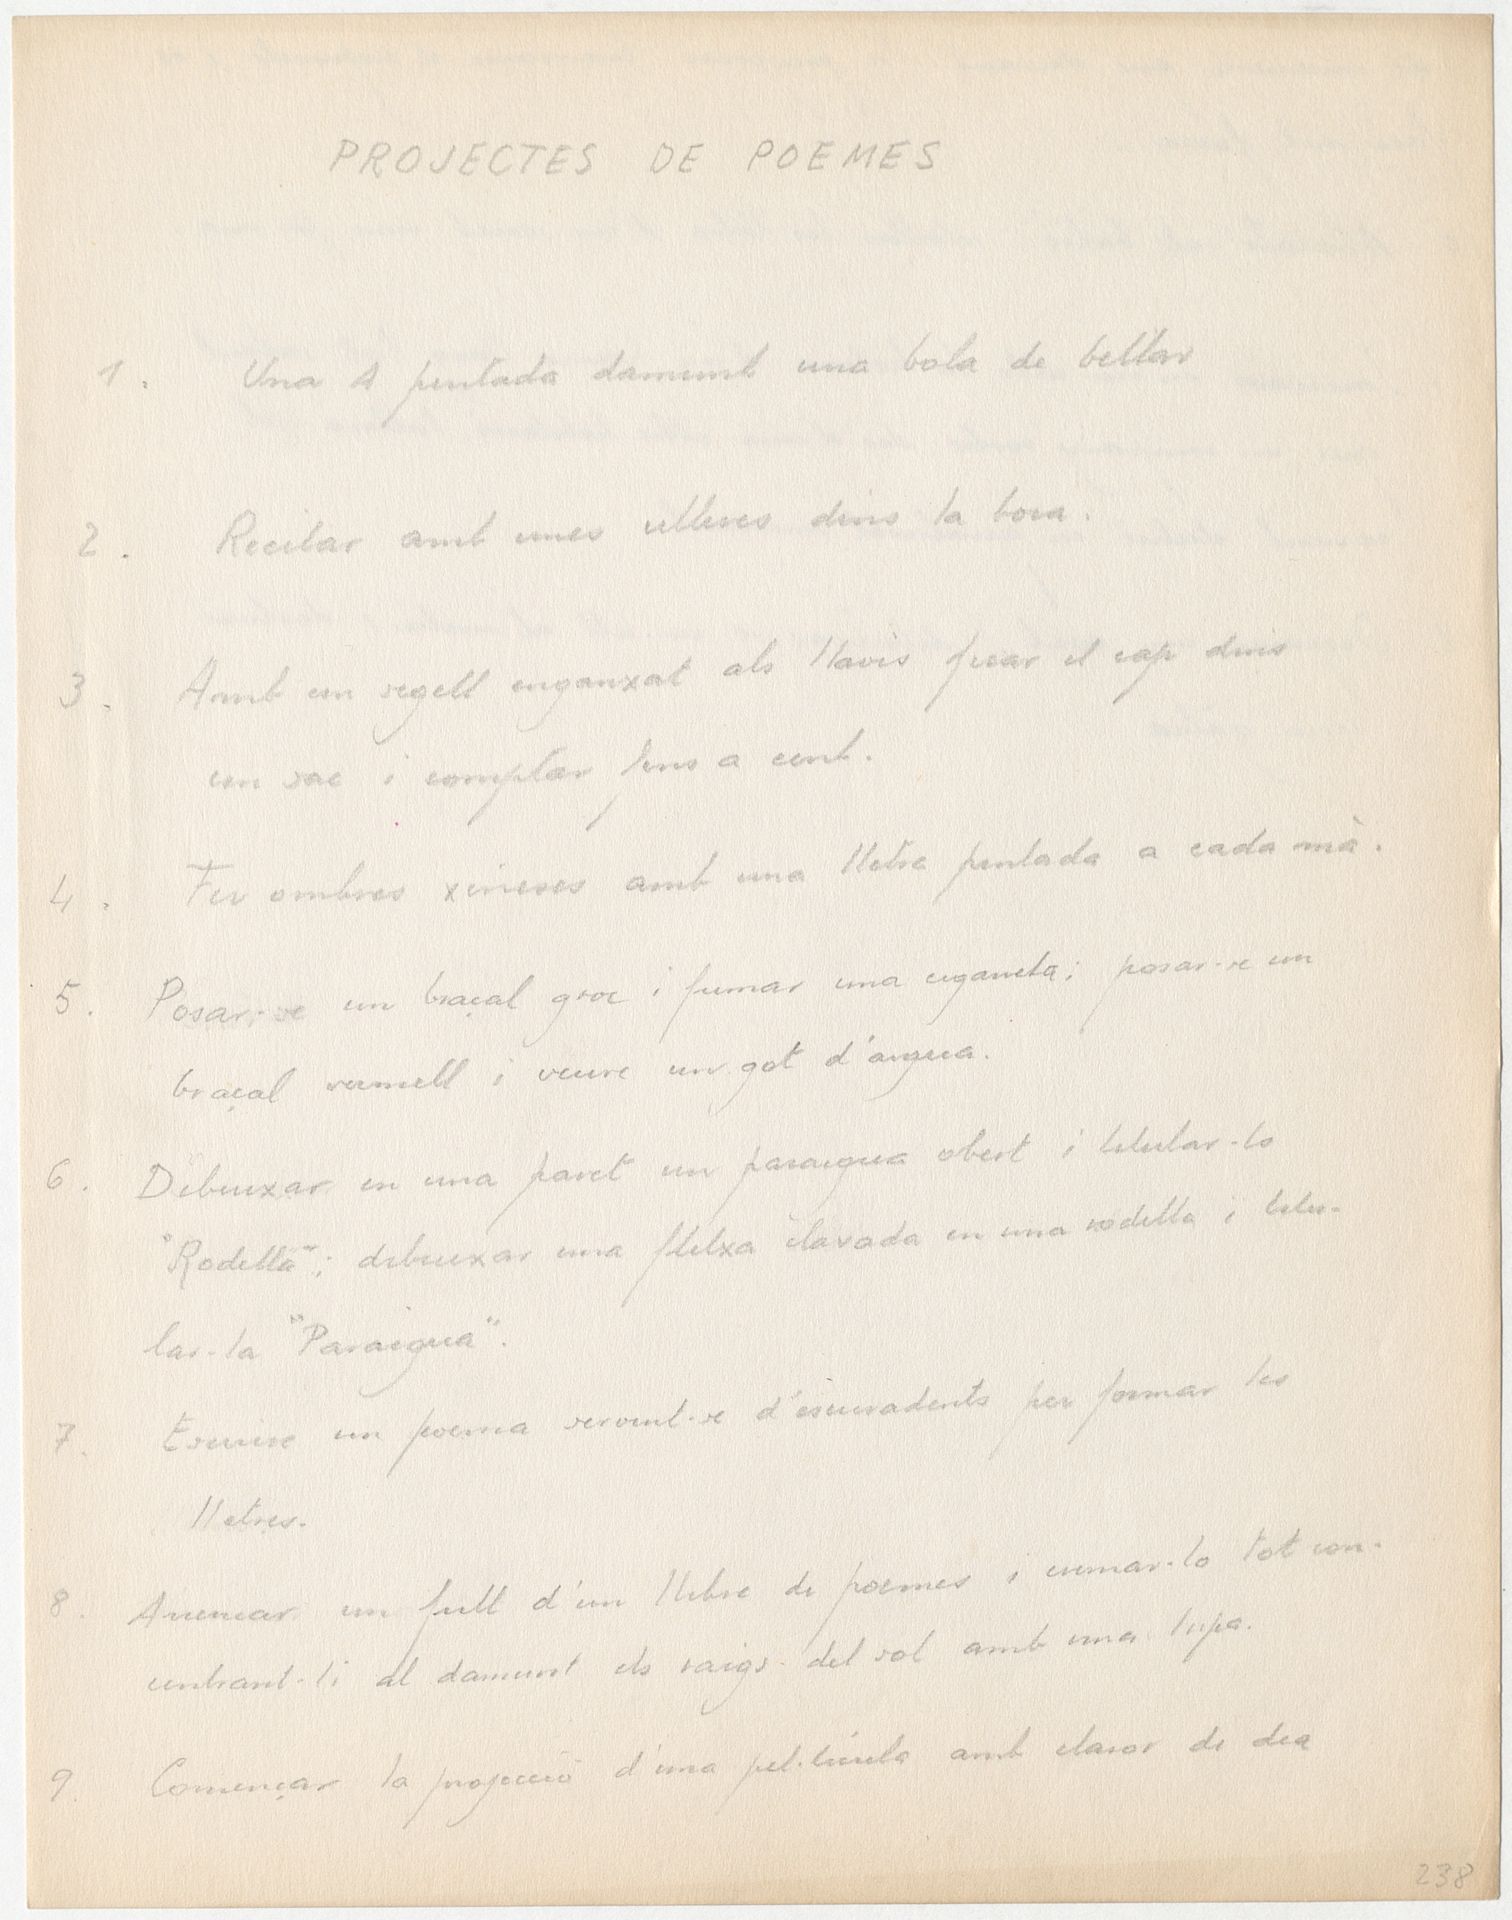 PROJECTES DE POEMES
1. Una A pintada damunt una bola de billar
2. Recitar amb unes ulleres dins la boca.
3. Amb un segell enganxat als llavis ficar el cap dins
un sac i comptar fins a cent.
4. Fer ombres xineses amb una lletra pintada a cada mà.
5. Posar-se un braçal groc i fumar una cigarreta; posar-se un
braçal vermell i veure un got d'aigua.
6. Dibuixar en una paret un paraigua obert i titular-lo
"Rodella"; dibuixar una fletxa clavada en una rodella i titu-
lar-la "Paraigua".
7. Escriure un poema servint-se d'escuradents per formar les
lletres.
8. Arrencar un full d'un llibre de poemes i cremar-lo tot con-
centrant-li al damunt els raigs del sol amb una lupa.
9. Començar la projecció d'una pel·lícula amb claror de dia
238